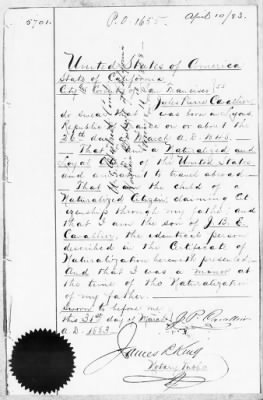 5701.
P.O. 1655.
April 10/83.
United States of America
State of California
City & County of San Francisco } SS
Jules Pierre Cavallier
do swear that I was born at
Republic of France on or about the
26th day of March A.D.
That I am a Naturalized and
Loyal Citizen of the United States
and am about to travel abroad —
— That I am the child of a
Naturalized Citizen claiming Cit
izenship through my father and
that I am the son of J. B. E.
Cavallier, the identical person
described in the Certificate of
Naturalization herewith presented —
And that I was a minor at
the time of the Naturalization
of my father —
Sworn to before me
this 31st day of March
A.D. 1883
J. P. Cavallier
James L. King
Notary Public